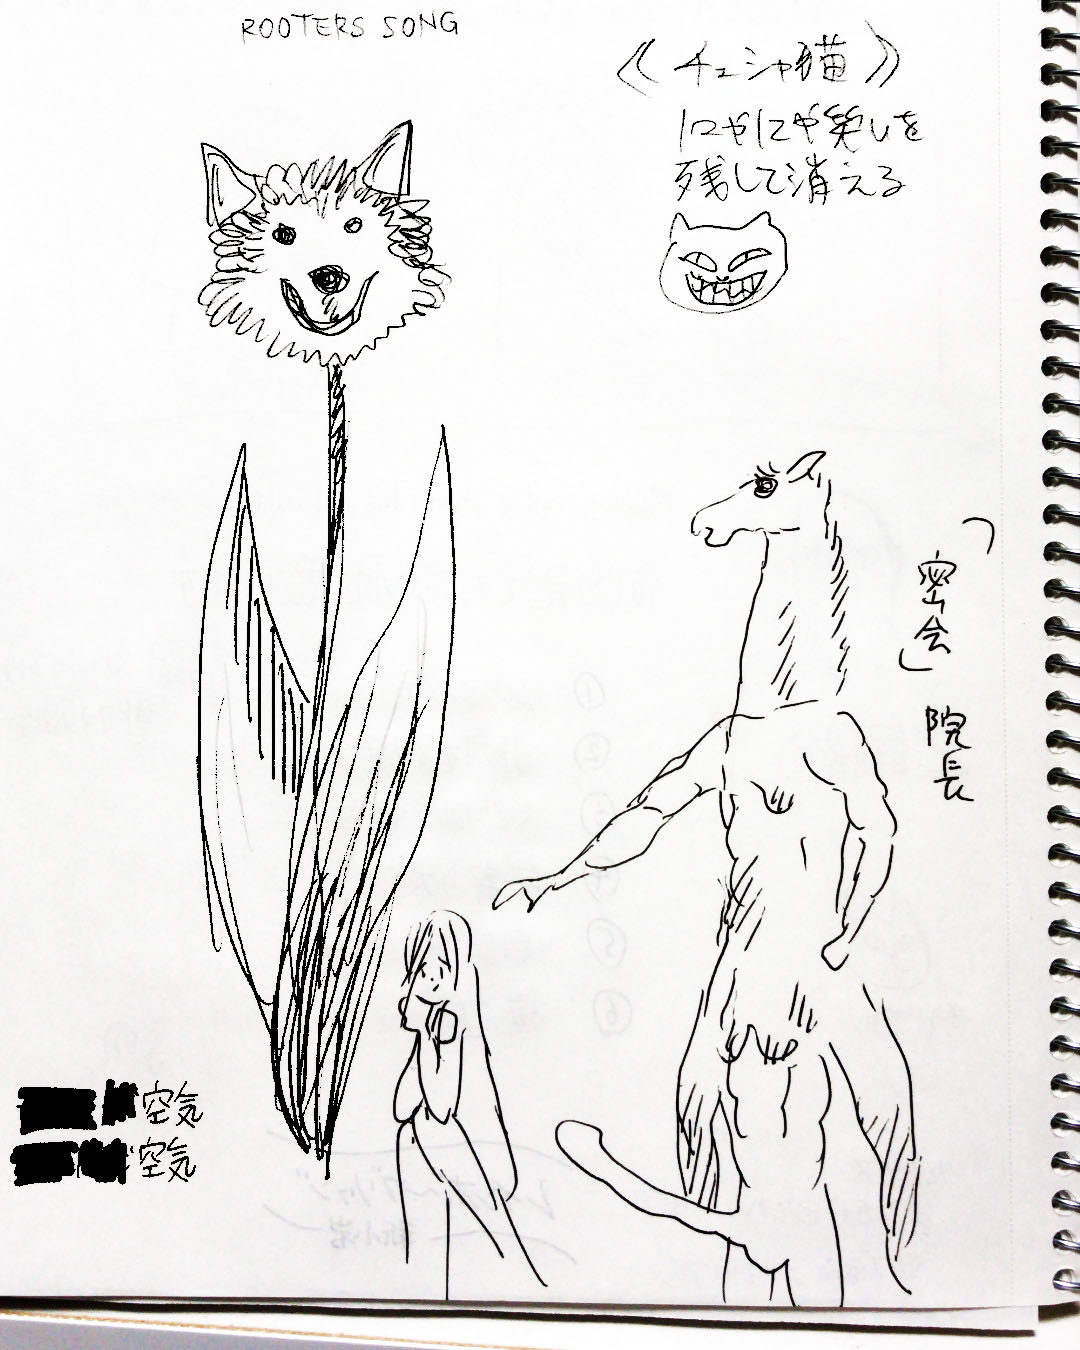 ROOTERS SONG
《チェシャ猫》
にやにや笑いを
残して消える
「密会」院長
空気
空気